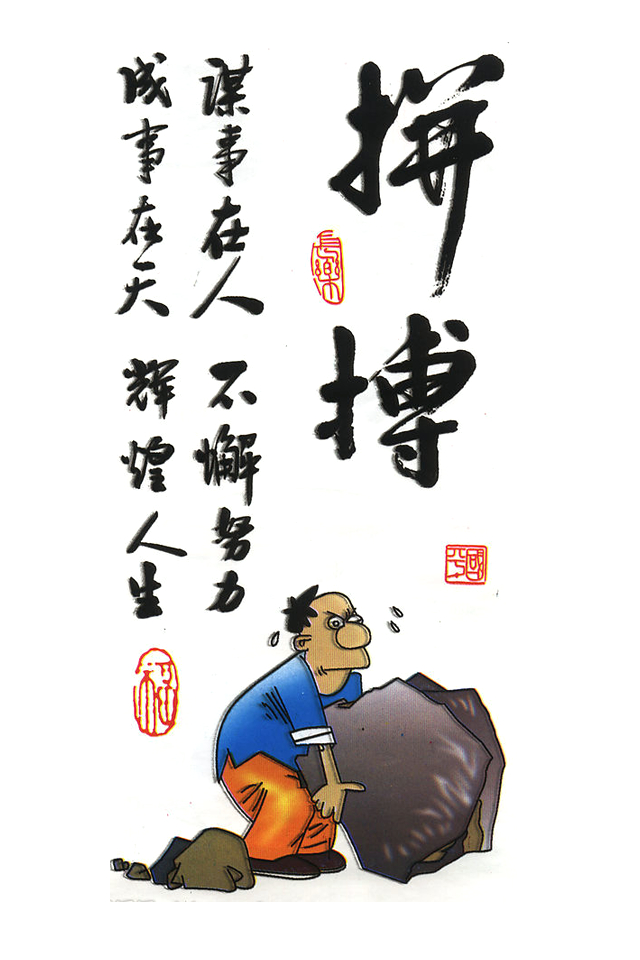 拼搏
長樂
谋事在人 不懈努力
成事在天 辉煌人生